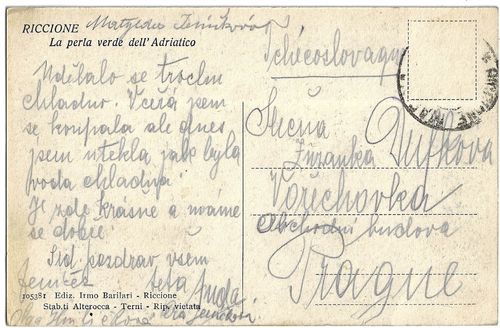 RICCIONE
La perla verde dell'Adriatico
Tchécoslovaque
Udělalo se trochu
chladno. Včera jsem
se koupala ale dnes
jsem utekla jak byla
voda chladná
Je zde krásně a máme
se dobře
Srd. pozdrav všem
teta
Slečna
Zuzanka Dufková
Vořechovka
Obchodní budova
Prague
105381 Ediz. Irmo Barilari - Riccione
Stab.ti Alterocca - Terni - Rip. vietata